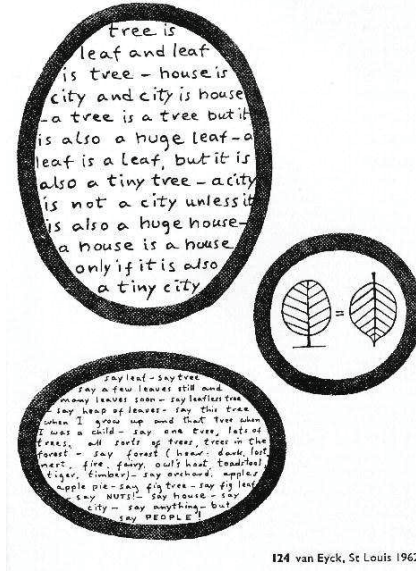 tree is
leaf and leaf
is tree – house is
city and city is house
– a tree is a tree but it
is also a huge leaf – a
leaf is a leaf, but it is
also a tiny tree – a city
is not a city unless it
is also a huge house –
a house is a house
only if it is also
a tiny city
=
say leaf – say tree
say a few leaves still and
many leaves soon – say leafless tree
– say heap of leaves – say this tree
when I grow up and that tree when
I was a child – say one tree, lots of
trees, all sorts of trees, trees in the
forest – say forest (hear: dark, lost,
nert, fire, fairy, owl's hoot, toadstool,
tiger, timber) – say orchard, apples
apple pie – say fig tree – say fig leaf
– say NUTS! – say house – say
city – say anything – but
say PEOPLE!
124 van Eyck, St Louis 1962